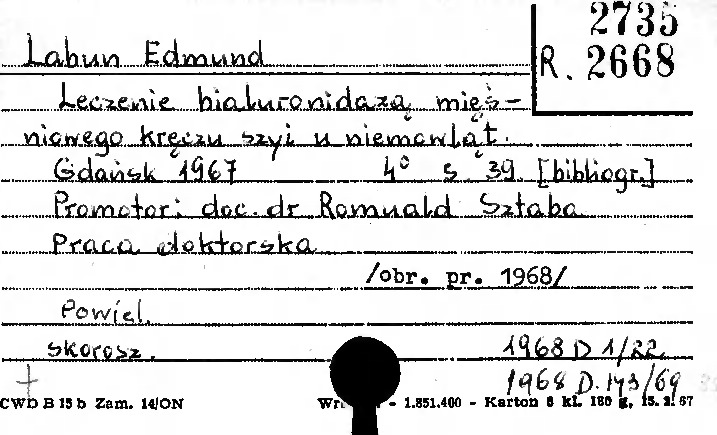 2735
Labun Edmund
R. 2668
Leczenie hialuronidazą mięś-
niowego kręczu szyi u niemowląt.
Gdańsk 1967 4° s. 39. [bibliogr.]
Promotor: doc. dr Romuald Sztaba
Praca doktorska
/obr. pr. 1968/
Powiel.
skorosz. 1968 D 1/22
1968 D. 173/69
CWD B 15 b Zam. 14/ON - 1.851.400 - Karton 8 kl. 180 g, 15. 2. 67